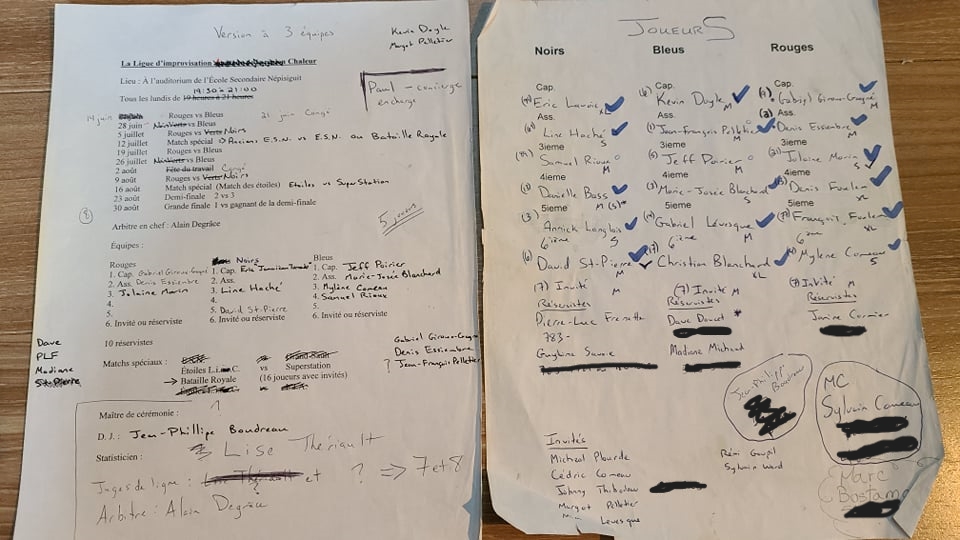 Version à 3 équipes
Kevin Doyle
Margot Pelletier
La Ligue d'improvisation Chaleur
Lieu : À l'auditorium de l'École Secondaire Népisiguit
19:30 à 21:00
Tous les lundis de 19 heures à 21 heures
Paul - concierge
en charge
14 juin Rouges vs Bleus
21 juin Congé
28 juin Noirs vs Bleus
5 juillet Rouges vs Verts Noirs
12 juillet Match spécial → Anciens E.S.N vs E.S.N. ou Bataille Royale
19 juillet Rouges vs Bleus
26 juillet Noirs vs Bleus
2 août Fête du travail Congé
9 août Rouges vs Verts Noirs
16 août Match spécial (Match des étoiles) Etoiles vs SuperStation
23 août Demi-finale 2 vs 3
30 août Grande finale 1 vs gagnant de la demi-finale
8
5 joueurs
Arbitre en chef : Alain Degrâce
Équipes :
Rouges
1. Cap. Gabriel Giroux-Gagné
2. Ass. Denis Essiembre
3. Jolaine Morin
4.
5.
6. Invité ou réserviste
Noirs
1. Cap. Eric
2. Ass.
3. Line Haché
4.
5. David St-Pierre
6. Invité ou réserviste
Bleus
1. Cap. Jeff Poirier
2. Ass. Marie-Josée Blanchard
3. Mylène Comeau
4. Samuel Rioux
5.
6. Invité ou réserviste
10 réservistes
Dave
PLF
Madiane
St-Pierre
Gabriel Giroux-Gagné
Denis Essiembre
? Jean-François Pelletier
Matchs spéciaux :
Étoiles L.i. C. vs Superstation
→ Bataille Royale (16 joueurs avec invités)
Maître de cérémonie :
D.J. : Jean-Phillipe Boudreau
Lise Thériault
Statisticien :
Juges de ligne : et ? ⇒ 7 et 8
Arbitre : Alain Degrâce
JOUEURS
Noirs
Cap.
Eric XL
Ass.
Line Haché S
3ieme
Samuel Rioux M
4ieme
Danielle Boss M (S)*
5ieme
(3) Annick Langlois S
6ième
(6) David St-Pierre M
(7) Invité M
Réservistes
Pierre-Luc Frenette
783-
Guylaine Savoie
Bleus
Cap.
Kevin Doyle M
Ass.
(1) Jean-François Pelletier M
3ieme
(5) Jeff Poirier M
4ieme
(3) Marie-Josée Blanchard S
5ieme
Gabriel Lévesque M
6ième
Christian Blanchard XL
(7) Invité M
Réservistes
Dave Doucet *
Madiane Michaud
Rouges
Cap.
Gabriel Giroux-Gagné M
Ass.
(2) Denis Essiembre M
3ieme
(21) Jolaine Morin S
4ieme
Denis Foulem XL
5ieme
François Foulem XL
6ième
Mylène Comeau S
(7) Invité M
Réservistes
Janine Cormier
Jean-Philippe
Boudreau
MC
Sylvain Comeau
Marc
Invités
Micheal Plourde
Cédric Comeau
Johnny Thibodeau
Margot Pelletier
Levesque
Rémi Goupil
Sylvain Ward